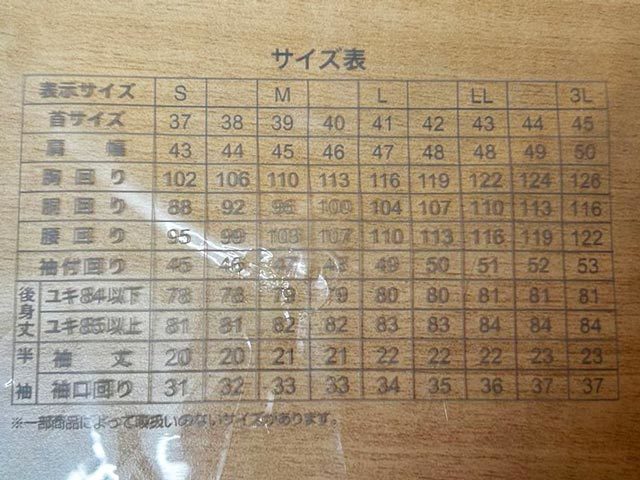 サイズ表
表示サイズ S M L LL 3L
首サイズ 37 38 39 40 41 42 43 44 45
肩幅 43 44 45 46 47 48 48 49 50
胸回り 102 106 110 113 116 119 122 124 126
胴回り 88 92 96 100 104 107 110 113 116
腰回り 95 99 103 107 110 113 116 119 122
袖付回り 45 46 47 48 49 50 51 52 53
後身丈 ユキ84以下 78 78 79 79 80 80 81 81 81
ユキ85以上 81 81 82 82 83 83 84 84 84
半袖 袖丈 20 20 21 21 22 22 22 23 23
袖口回り 31 32 33 33 34 35 36 37 37
※一部商品によって取扱いのないサイズがあります。